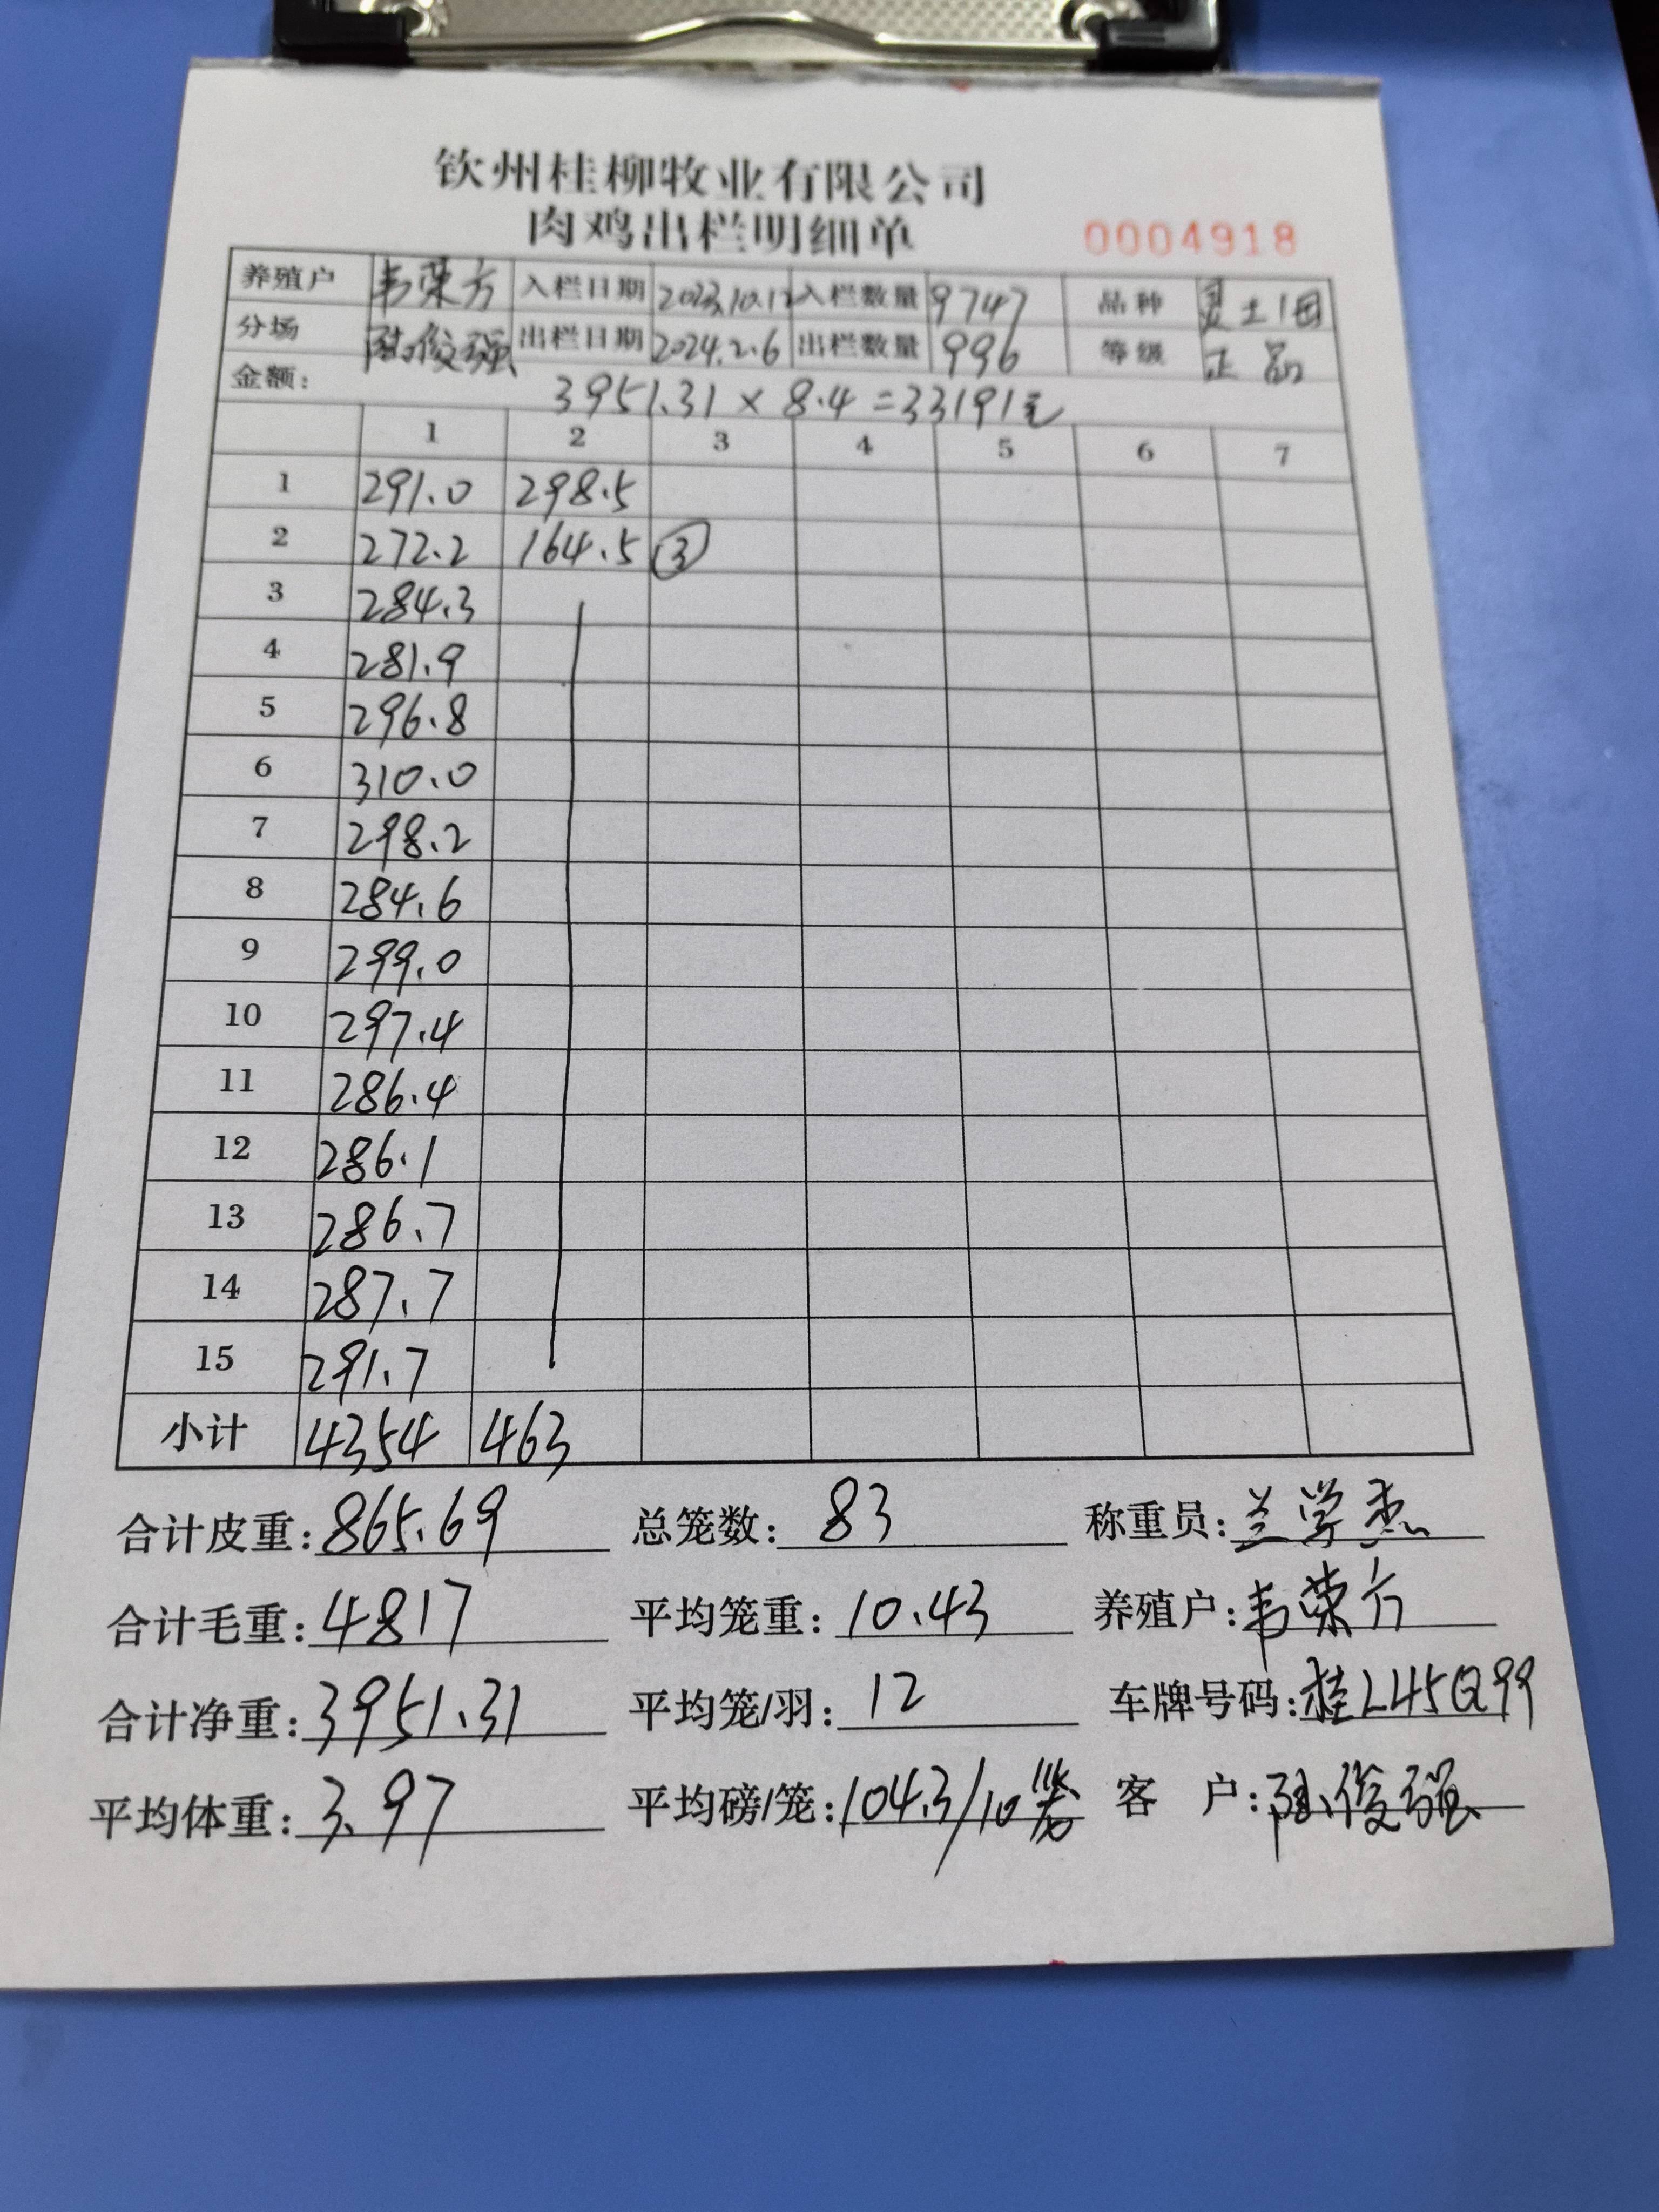 钦州桂柳牧业有限公司
肉鸡出栏明细单 0004918
养殖户 韦荣方 入栏日期 2023.10.12 入栏数量 9747 品种 土1
分场 俊强 出栏日期 2024.2.6 出栏数量 996 等级 正品
金额: 3951.31 × 8.4 =33191元
1 2 3 4 5 6 7
1 291.0 298.5
2 272.2 164.5 ③
3 284.3
4 281.9
5 296.8
6 310.0
7 298.2
8 284.6
9 299.0
10 297.4
11 286.4
12 286.1
13 286.7
14 287.7
15 291.7
小计 4354 463
合计皮重: 865.69 总笼数: 83 称重员: 兰学杰
合计毛重: 4817 平均笼重: 10.43 养殖户: 韦荣方
合计净重: 3951.31 平均笼/羽: 12 车牌号码: 桂L45Q99
平均体重: 3.97 平均磅/笼: 104.3/10笼 客 户: 俊强